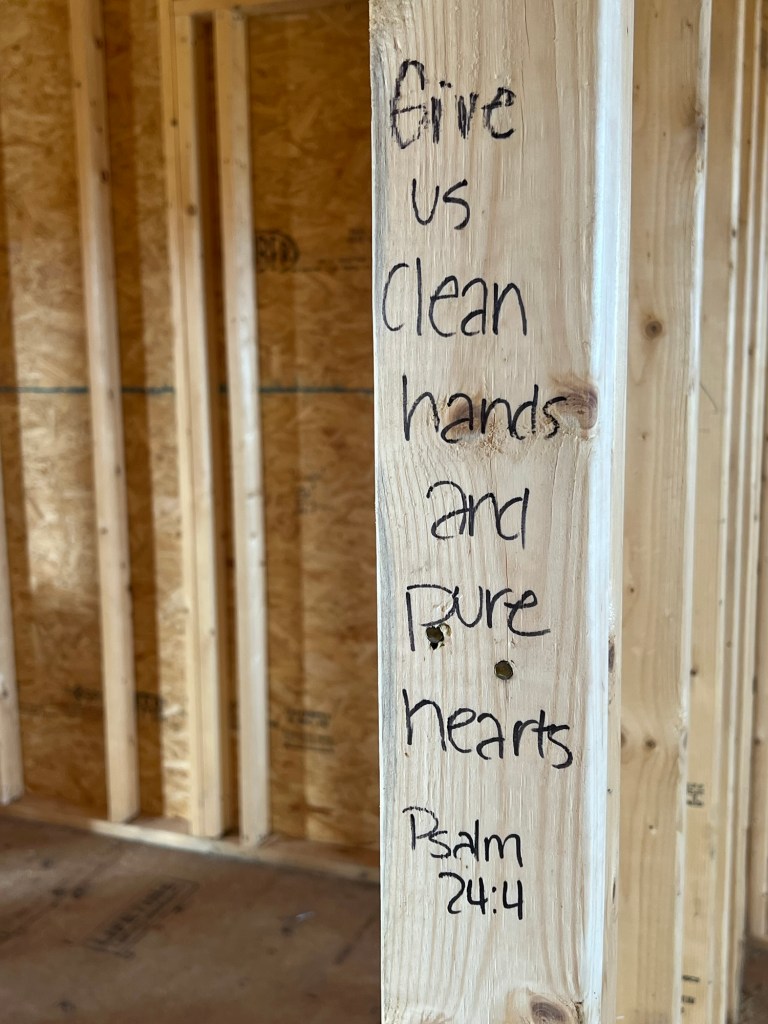 Give
us
clean
hands
and
pure
hearts
Psalm
24:4